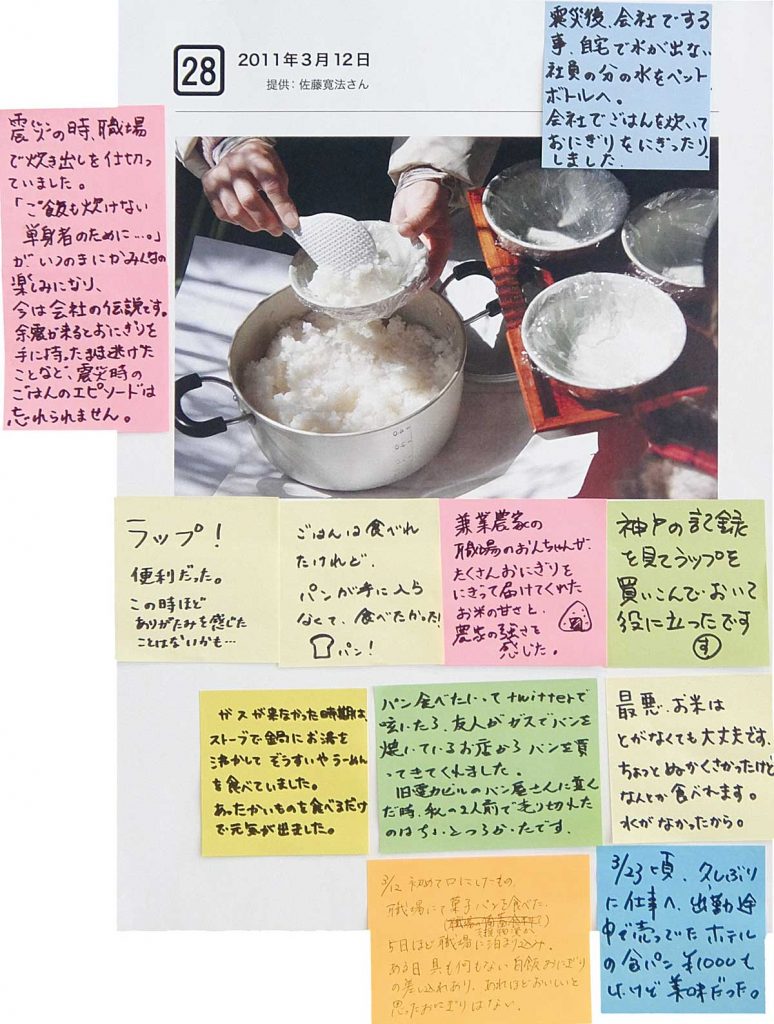 28
2011年3月12日
提供：佐藤寛法さん
震災後、会社でする
事、自宅で水が出ない
社員の分の水をペット
ボトルへ。
会社でごはんを炊いて
おにぎりをにぎったり
しました。
震災の時、職場
で炊き出しを仕切っ
ていました。
「ご飯も炊けない
単身者のために…。」
がいつのまにかみんなの
楽しみになり、
今は会社の伝説です。
余震が来るとおにぎりを
手に持ったまま逃げた
ことなど、震災時の
ごはんのエピソードは
忘れられません。
ラップ！
便利だった。
この時ほど
ありがたみを感じた
ことはないかも…
ごはんは食べれ
たけれど、
パンが手に入ら
なくて、食べたかった!
パン！
兼業農家の
職場のおんちゃんが、
たくさんおにぎりを
にぎって届けてくれた
お米の甘さと、
農家の強さを
感じた。
神戸の記録
を見てラップを
買いこんでおいて
役に立ったです
す
ガスが来なかった時期は、
ストーブで鍋にお湯を
沸かして ぞうすいやらーめん
を食べていました。
あったかいものを食べるだけ
で元気が出ました。
パン食べたいってtwitterで
呟いたら、友人がガスでパンを
焼いているお店からパンを買っ
てきてくれました。
旧電力ビルのパン屋さんに並ん
だ時、私の2人前で売り切れた
のはちょっとつらかったです。
最悪、お米は
とがなくても大丈夫です、
ちょっとぬかくさかったけど
なんとか食べれます。
水がなかったから。
3/12 初めて口にしたもの。
職場にて菓子パンを食べた。
5日ほど職場に泊まり込み。
ある日 具も何もない白飯おにぎり
の差し入れあり、あれほどおいしいと
思ったおにぎりはない。
3/23頃、久しぶり
に仕事へ、出勤途
中で売ってたホテル
の食パン ¥1000も
したけど美味だった。